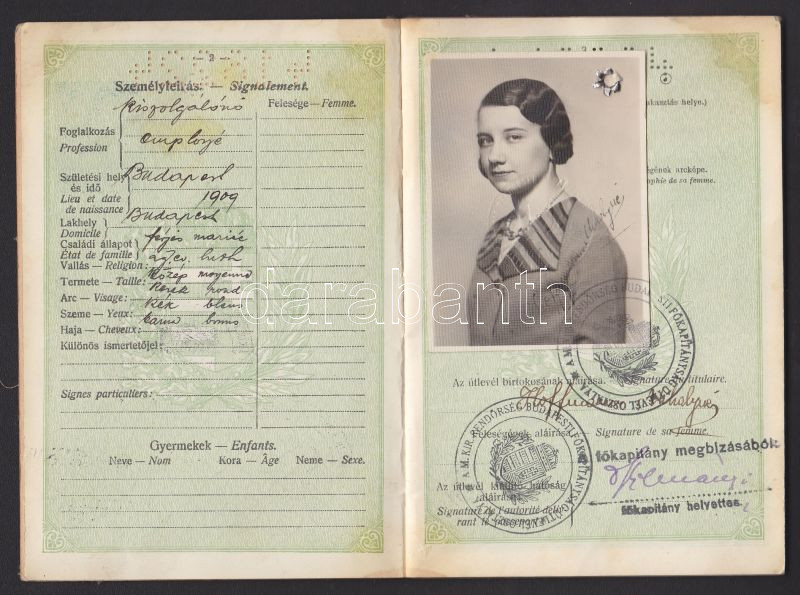 — 2 —
Személyleírás: — Signalement.
Felesége — Femme.
kiszolgálónő
Foglalkozás
Profession
employé
Születési hely
és idő
Lieu et date
de naissance
Budapest
1909
Lakhely
Domicile
Budapest
Családi állapot
État de famille
férjes mariée
Vallás — Religion:
ág. ev. luth
Termete — Taille:
közép moyenne
Arc — Visage:
kerek rond
Szeme — Yeux:
kék bleus
Haja — Cheveux:
barna
Különös ismertetőjel:
Signes particuliers:
Gyermekek — Enfants.
Neve — Nom Kora — Âge Neme — Sexe.
3
akasztás helye.)
ségének arcképe.
phie de sa femme.
Az útlevél birtokosának aláírása. Signature titulaire.
Feleségének aláírása. Signature de sa femme.
főkapitány megbízásából
Az útlevél kiállító hatóság
aláírása.
Signature de l'autorité déliv-
rant le passeport.
főkapitány helyettes.
A M. KIR. RENDŐRSÉG BUDAPESTI FŐKAPITÁNYSÁG ÚTLEVÉL OSZTÁLYA
A M. KIR. RENDŐRSÉG BUDAPESTI FŐKAPITÁNYSÁG ÚTLEVÉL OSZTÁLYA
darabanth